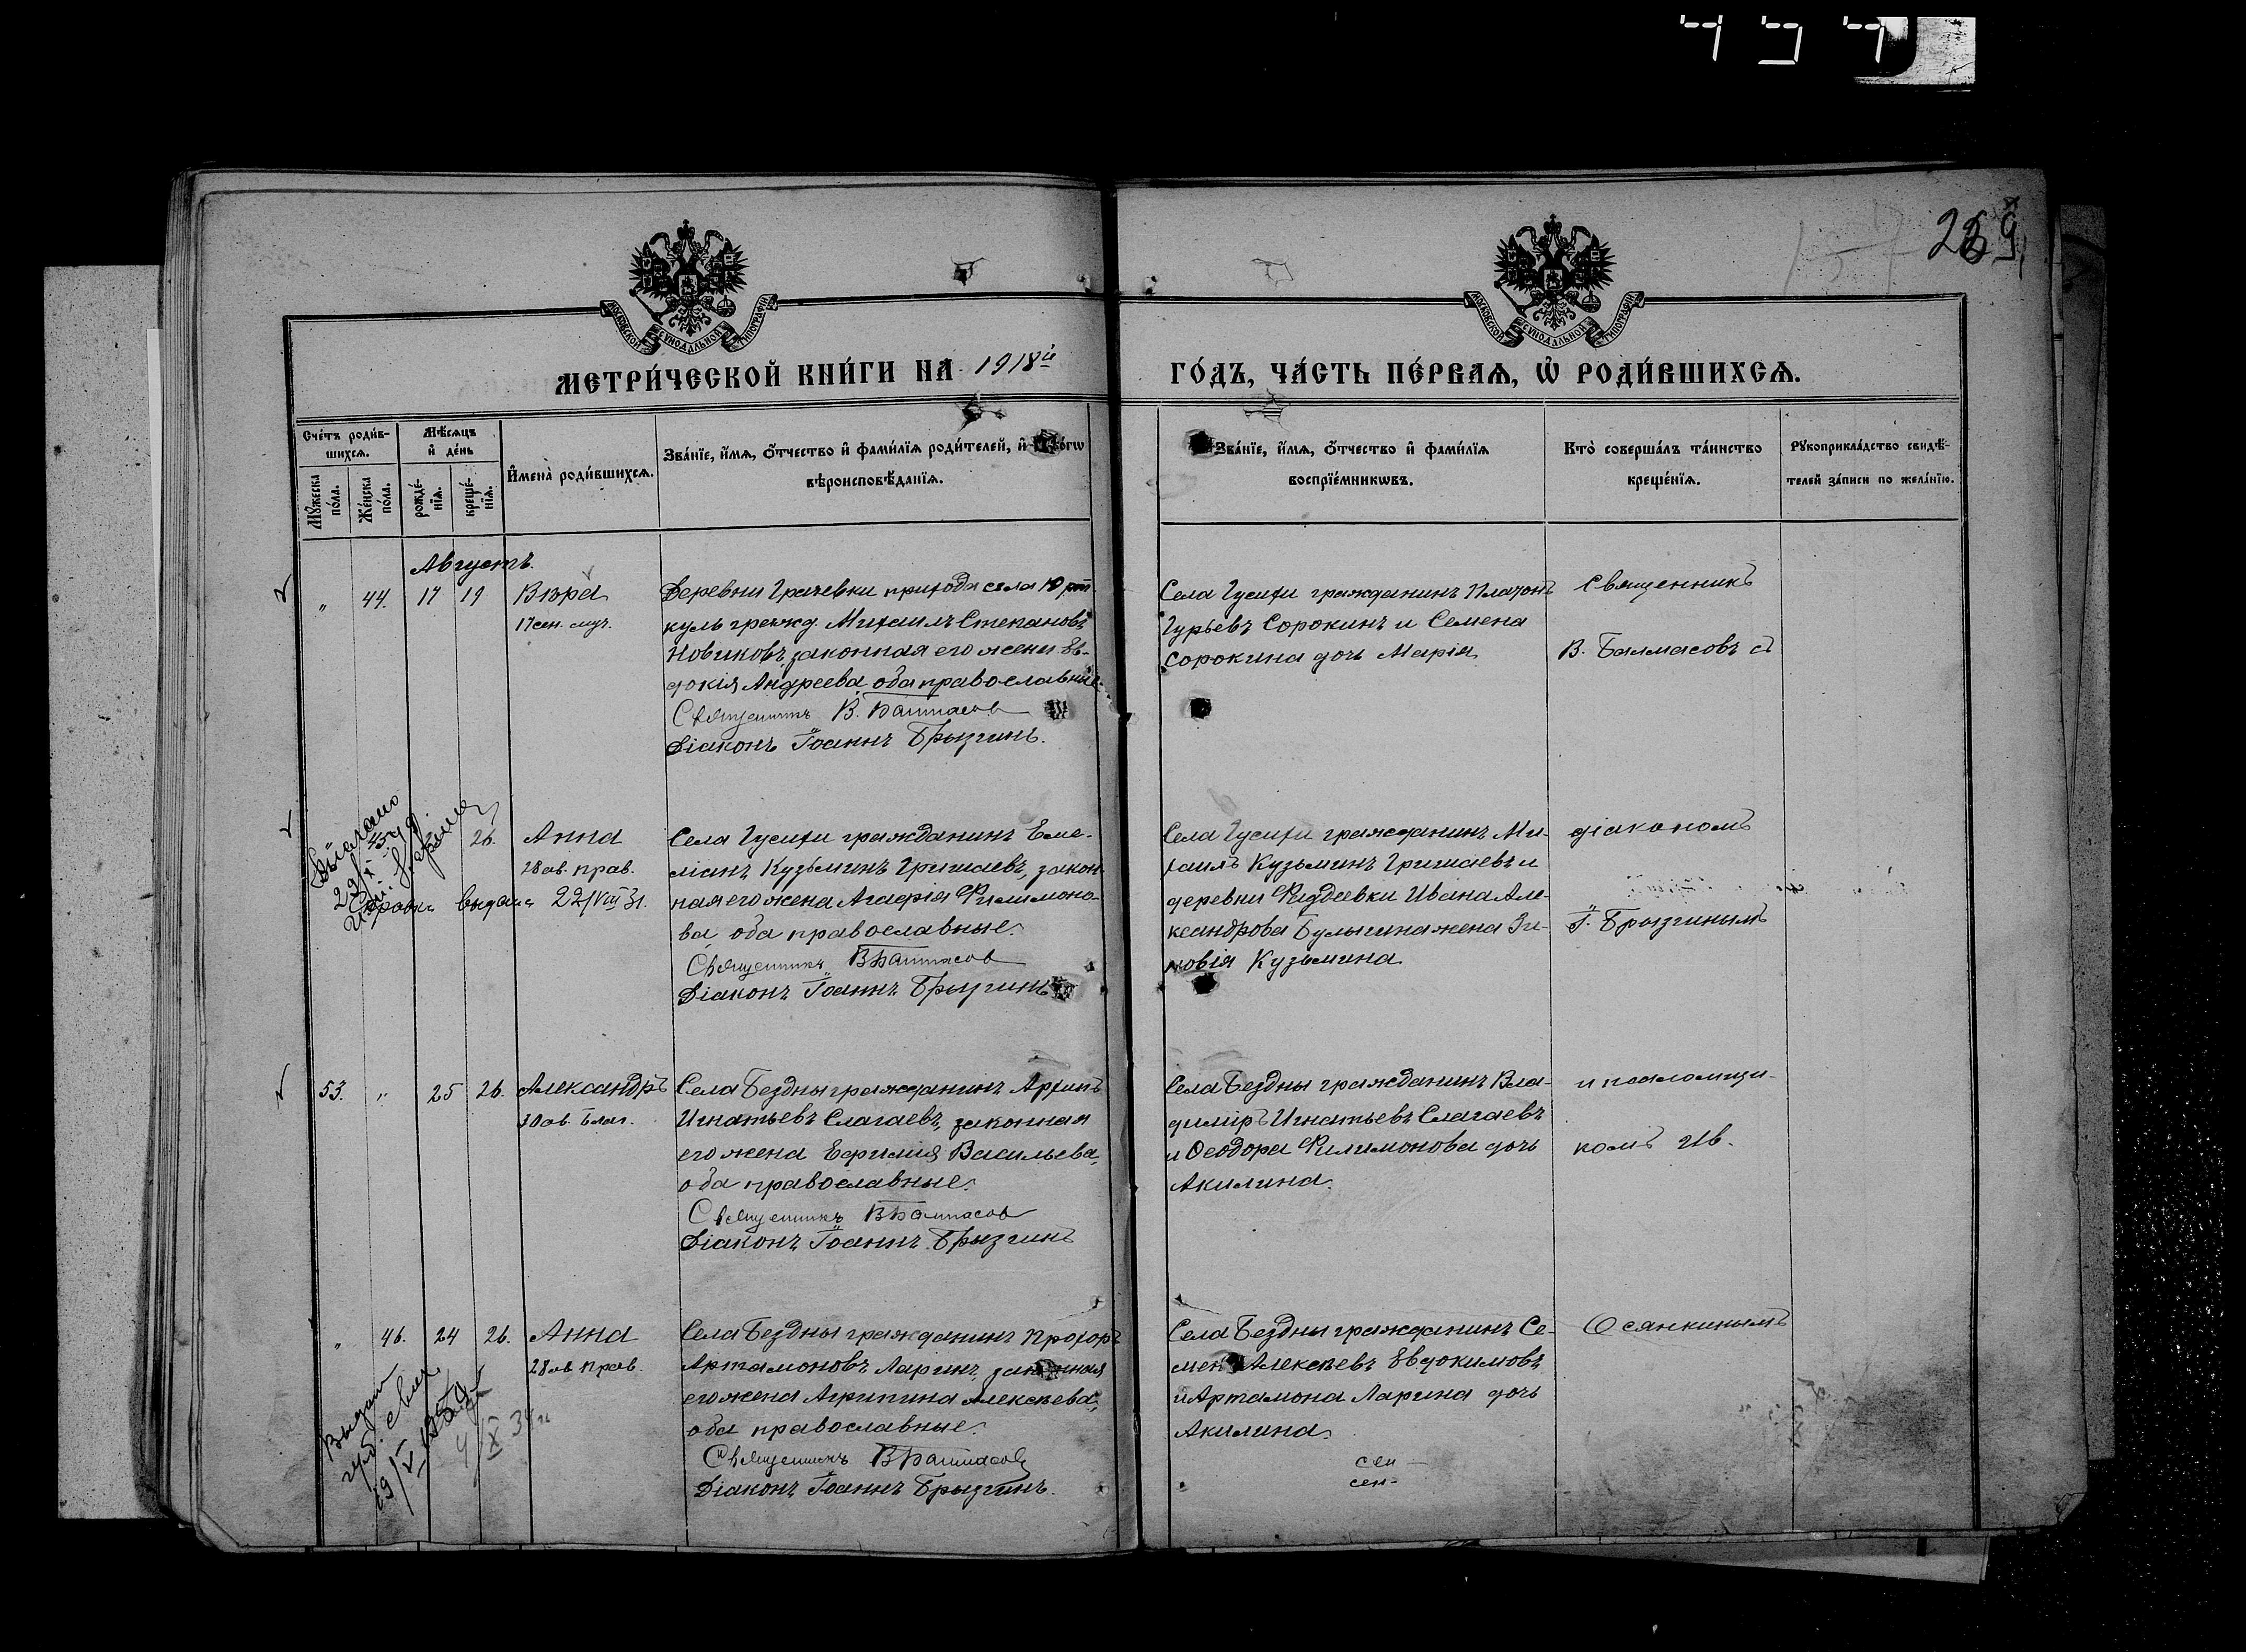 259
МОСКОВСКОЙ СѴНОДАЛЬНОЙ ТИПОГРАФІИ
МОСКОВСКОЙ СѴНОДАЛЬНОЙ ТИПОГРАФІИ
МЕТРИ́ЧЕСКОЙ КНИ́ГИ НА 1918й
ГО́ДЪ, ЧА́СТЬ ПЕ́РВАѦ, Ѡ РОДИ́ВШИХСѦ.
Сче́тъ роди́в-
шихсѧ.
Мꙋ́жеска по́ла.
Же́нска по́ла.
Мѣ́сѧцъ
и҆ де́нь
рожде́-
нїѧ.
креще́-
нїѧ.
И҆мена̀ роди́вшихсѧ.
Зва́нїе, и҆́мѧ, ѻ҆́тчество и҆ фами́лїѧ роди́телей, и҆
вѣроисповѣ́данїѧ.
Зва́нїе, и҆́мѧ, ѻ҆́тчество и҆ фами́лїѧ
воспрїе́мникѡвъ.
Кто̀ соверша́лъ та́инство
креще́нїѧ.
Рꙋкоприкла́дство свидѣ́-
телей за́писи по жела́нїю.
Августъ.
" 44. 17 19 Вѣра
17 сен. муч.
Деревни Грачевки прихода села Юрт
куль гражд. Михаилъ Степановъ
Новиковъ, законная его жена Ев-
докія Андреева, оба православные.
Священникъ В. Балмасов
Діаконъ Іоаннъ Брызгинъ.
Села Гусихи гражданинъ Платонъ
Гурьевъ Сорокинъ и Семена
Сорокина дочь Марія
Священникъ
В. Балмасовъ съ
26. Анна
28 ав. прав.
Справка выдана 22/VIII 31.
Села Гусихи гражданинъ Еме-
ліанъ Кузьминъ Гришаевъ, закон-
ная его жена Агафія Филимоно-
ва, оба православные.
Священникъ В Балмасов
Діаконъ Іоаннъ Брызгинъ
Села Гусихи гражданинъ Ми-
хаилъ Кузьминъ Гришаевъ и
деревни Ивана Але-
ксандрова Булыгина жена Зи-
новія Кузьмина.
діакономъ
І. Брызгинымъ
53. " 25 26. Александръ
30 ав. Благ.
Села Бездны гражданинъ Архипъ
Игнатьевъ Слагаевъ, законная
его жена Ефимія Васильева,
оба православные.
Священникъ В Балмасов
Діаконъ Іоаннъ Брызгинъ
Села Бездны гражданинъ Вла-
диміръ Игнатьевъ Слагаевъ
и Ѳеодора Филимонова дочь
Акилина.
и псаломщи-
комъ Ив.
" 46. 24 26. Анна
28 ав. прав.
Села Бездны гражданинъ Прохоръ
Артамоновъ Ларинъ, законная
его жена Агрипина Алексѣева,
оба православные.
Священникъ В Балмасов
Діаконъ Іоаннъ Брызгинъ.
Села Бездны гражданинъ Се-
менъ Алексѣевъ Евдокимовъ
и Артамона Ларина дочь
Акилина.
Осянкинымъ
сен -
сен -